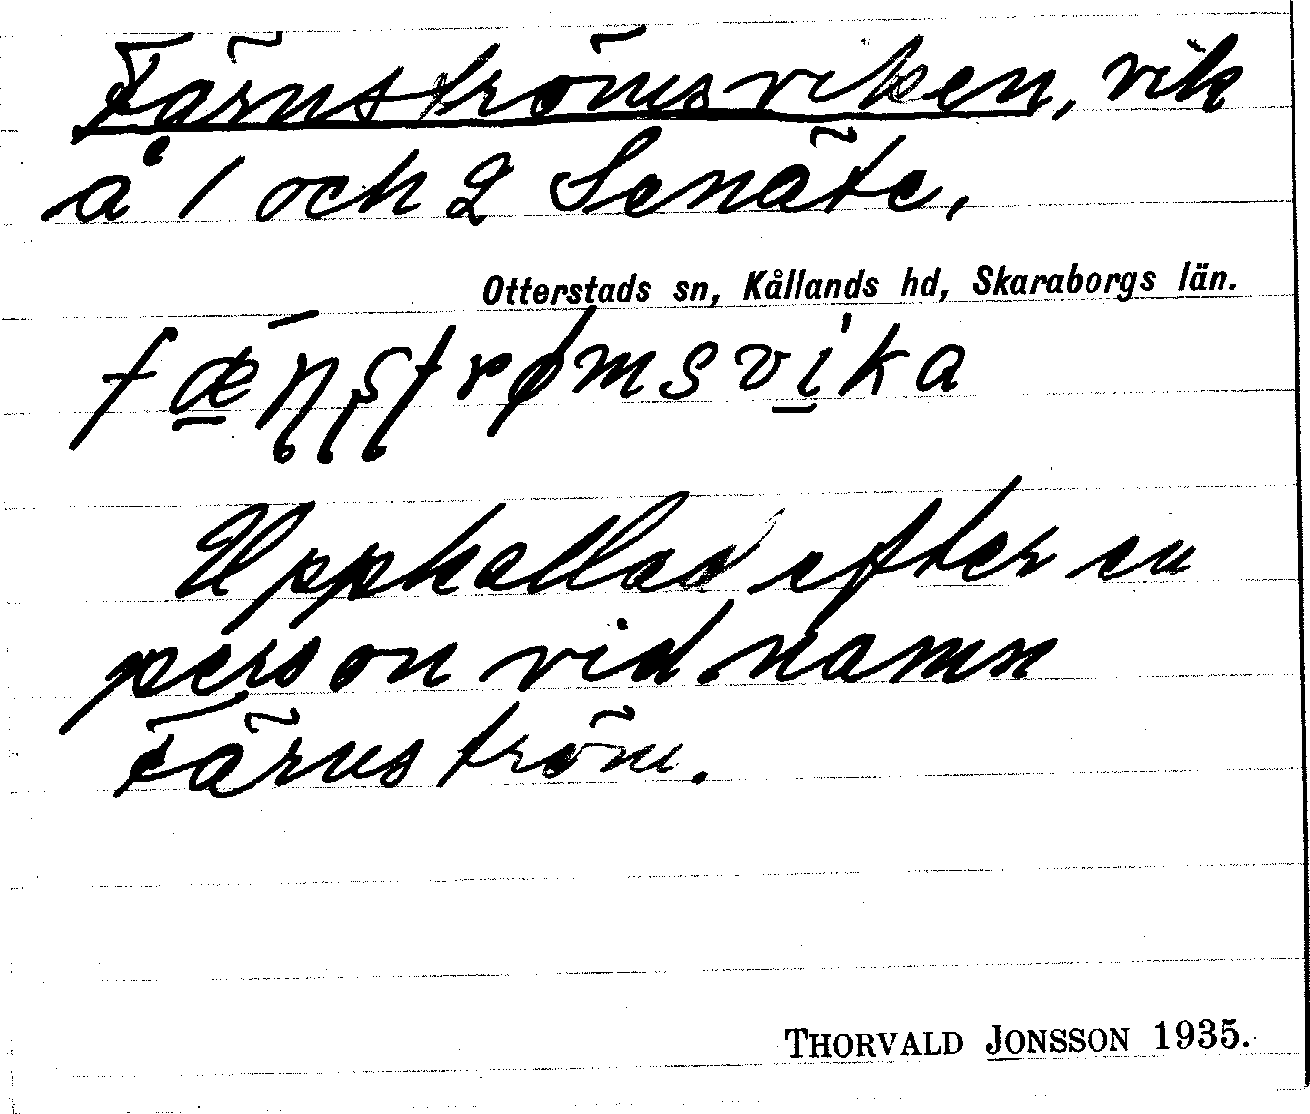 Färnströmsviken, vik
å 1 och 2 Senäte,
Otterstads sn, Kållands hd, Skaraborgs län.
fæṇṣṭrømsvika
Uppkallad efter en
person vid namn
Färnström.
THORVALD JONSSON 1935.